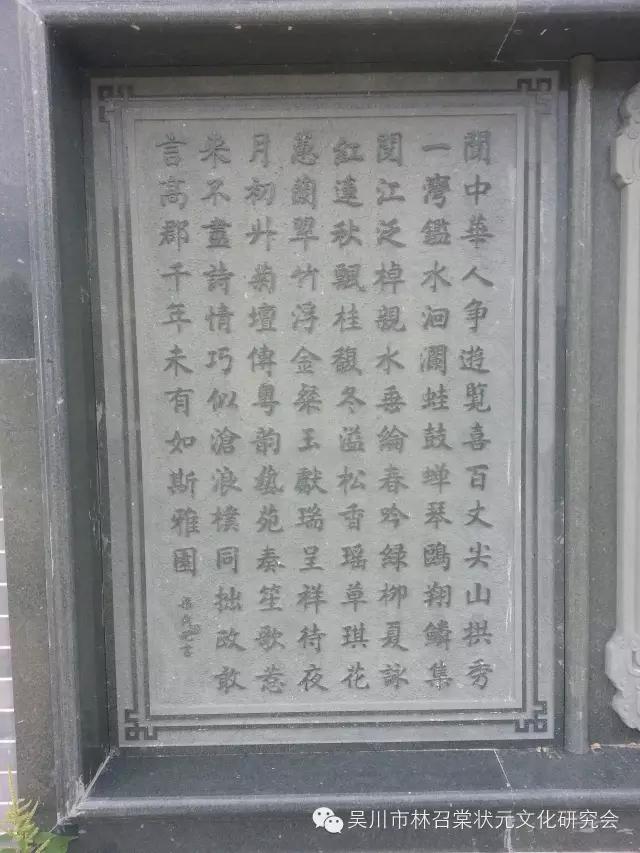 中華人争遊覧喜百丈尖山拱秀
一灣鑑水洄瀾蛙鼓蝉琴鷗翔鱗集
閱江泛棹親水垂綸春吟緑栁夏詠
紅蓮秋飄桂馥冬溢松香瑶草琪花
蕙蘭翠竹浮金粲玉獻瑞呈祥待夜
月初升菊壇傳粤韵藝苑奏笙歌惹
来不盡詩情巧似滄浪樸同拙政敢
言高郡千年未有如斯雅園
吴川市林召棠状元文化研究会